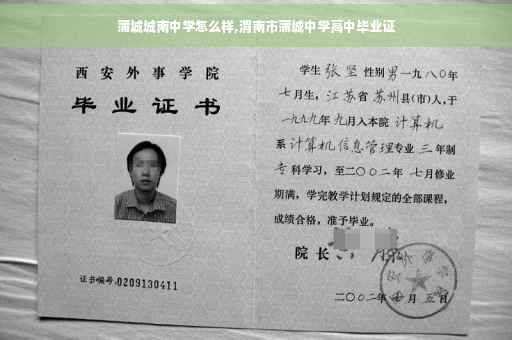 蒲城城南中学怎么样,渭南市蒲城中学高中毕业证
西安外事学院
毕业证书
证书编号:0209130411
学生 张坚 性别男 一九八〇年
七月生,江苏省 苏州县(市)人,于
一九九九年 九月入本院 计算机
系 计算机信息管理专业 三 年制
专科学习,至二〇〇二年 七月修业
期满,学完教学计划规定的全部课程,
成绩合格,准予毕业。
院长
二〇〇二年 月五日